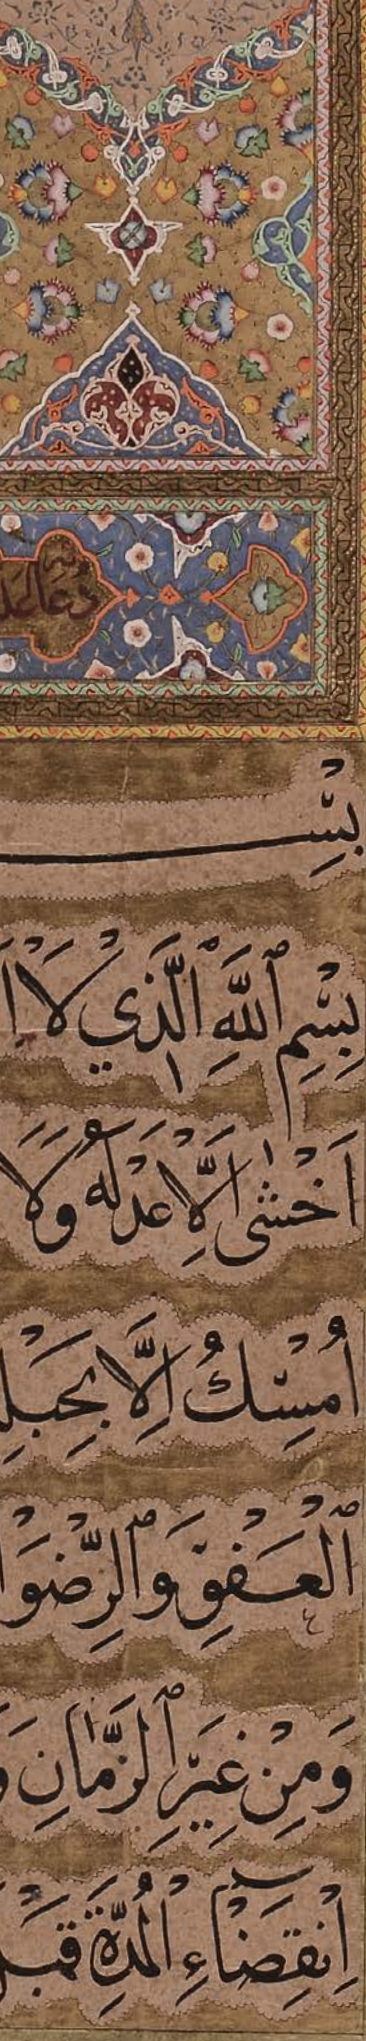 دعائه
بِسْـ
بِسْمِ ٱللَّهِ الَّذي لَا
اَخْشٰى اِلَّا عَدْلَهُ وَلَا
اُمْسِكُ اِلَّا بِحَبْلِهِ
ٱلْعَفْوِ وَٱلرِّضْوَا
وَمِنْ غِيَرِ ٱلزَّمانِ وَ
اِنْقِضَاءِ الْمُدَّةِ قَبْلَ